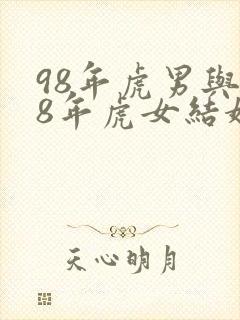 98年虎男與
8年虎女結婚
天心明月